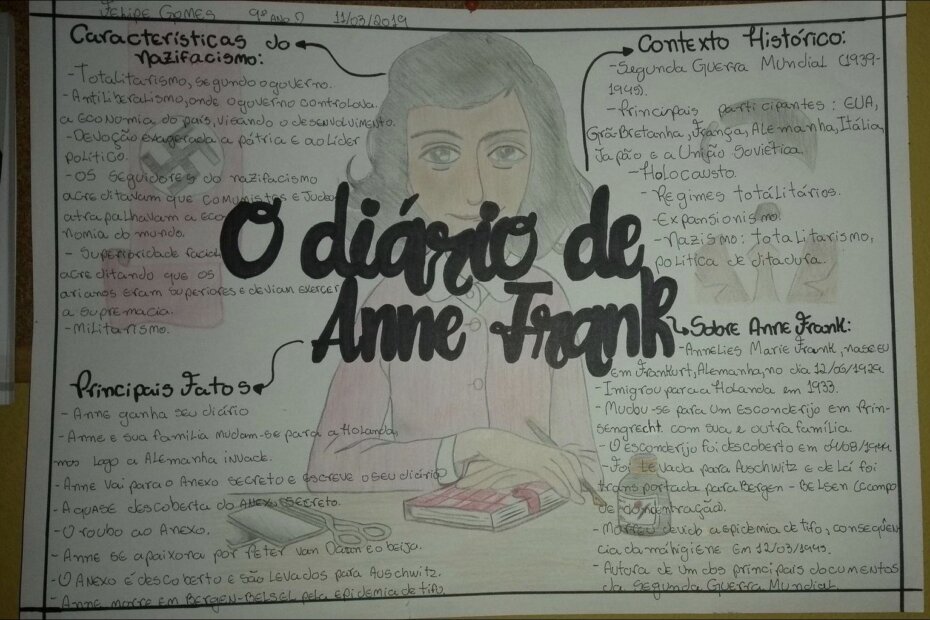 Felipe Gomes 9º ano D 11/03/2019
Características do
nazifacismo:
- Totalitarismo, segundo o governo.
- Antiliberalismo, onde o governo controlava
a economia do país, visando o desenvolvimento.
- Devoção exagerada a pátria e ao líder
político.
- Os seguidores do nazifacismo
acreditavam que comunistas e judeus
atrapalhavam a eco
nomia do mundo.
- Superioridade racial
acreditando que os
arianos eram superiores e devian exercer
a supremacia.
- Militarismo.
Contexto Histórico:
- Segunda Guerra Mundial (1939-
1945).
- Principais participantes: EUA,
Grã Bretanha, França, Alemanha, Itália,
Japão e a União Soviética.
- Holocausto.
- Regimes totálitários.
- Expansionismo.
- Nazismo: totalitarismo,
política de ditadura.
O diário de
Anne Frank
Principais Fatos
- Anne ganha seu diário
- Anne e sua família mudam-se para a Holanda,
mas logo a Alemanha invade.
- Anne vai para o Anexo secreto e escreve o seu diário
- A quase descoberta do Anexo secreto.
- O roubo ao Anexo.
- Anne se apaixona por Peter Van Daan e o beija.
- O Anexo é descoberto e são levados para Auschwitz.
- Anne morre em Bergen-Belsel pela epidemia de tifo.
Sobre Anne Frank:
- Annelies Marie Frank, nasceu
em Frankfurt, Alemanha, no dia 12/06/1929
- Imigrou para a Holanda em 1933.
- Mudou-se para um esconderijo em Prin-
sengrecht com sua e outra família.
- O esconderijo foi descoberto em 04/08/1944.
- Foi levada para Auschwitz e de lá foi
transportada para Bergen-Belsen (campo
de concentração).
- Morreu devido a epidemia de tifo, consequên
cia da má higiene em 12/03/1945.
- Autora de um dos principais documentos
da Segunda Guerra Mundial.